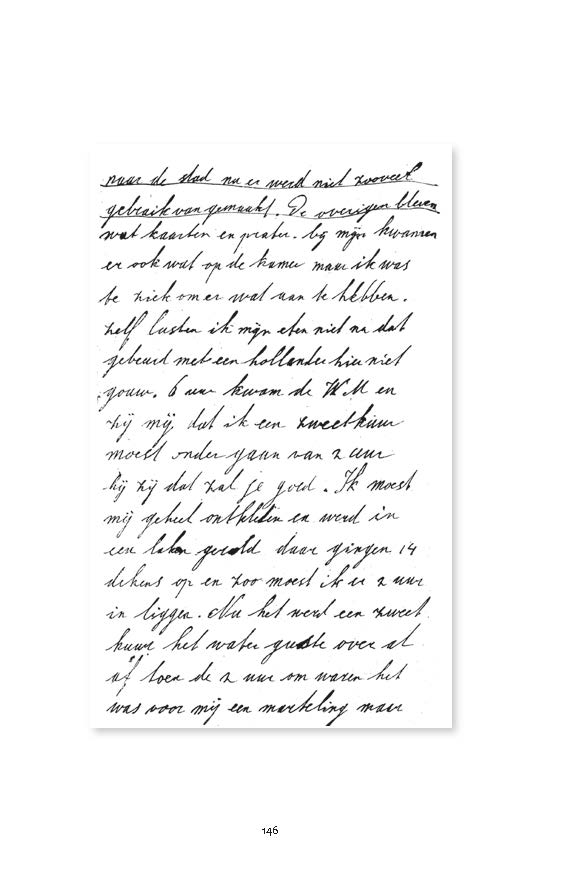 naar de stad nu er werd niet zooveel
gebruik van gemaakt. De overigen bleven
wat kaarten en praten. bij mijn kwamen
er ook wat op de kamer maar ik was
te ziek om er wat aan te hebben.
zelf lusten ik mijn eten niet nu dat
gebeurd met een hollander hier niet
gouw. 6 uur kwam de W M en
zij mij dat ik een zweetkuur
moest onder gaan van 2 uur
hij zij dat zal je goed. Ik moest
mij geheel ontkleden en werd in
een laken gerold daar gingen 14
dekens op en zoo moest ik er 2 uur
in liggen. Nu het werd een zweet
kuur het water guste over al
af toen de 2 uur om waren het
was voor mij een marteling maar
146